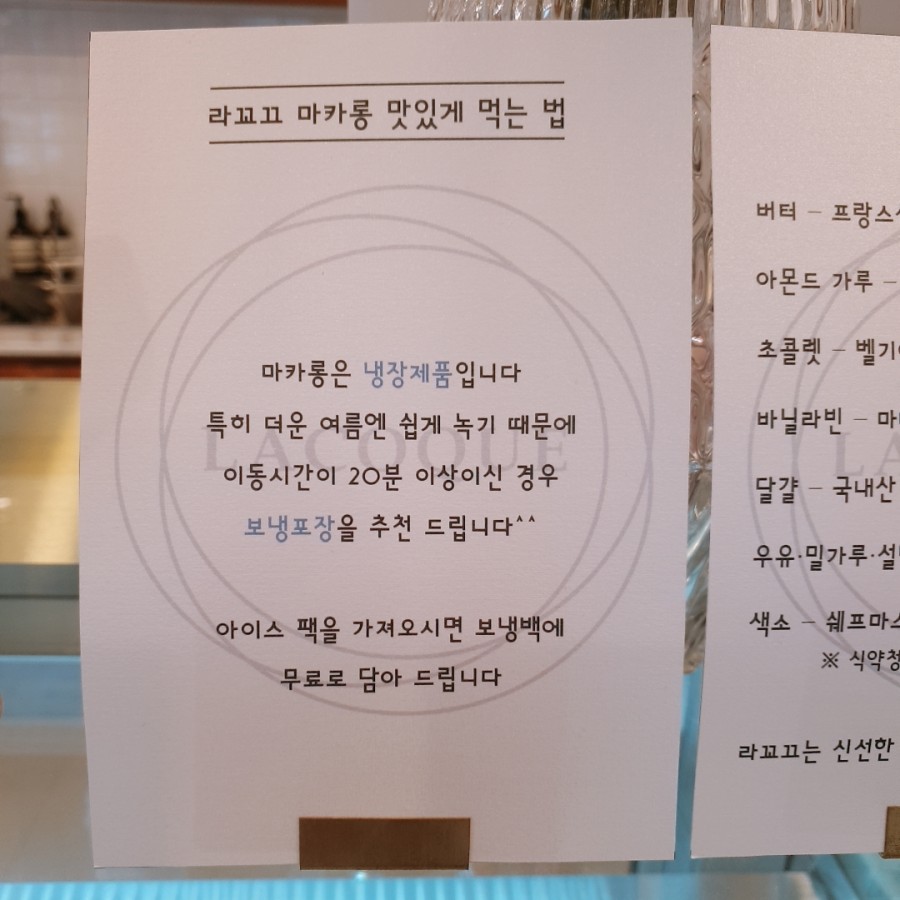 라꼬끄 마카롱 맛있게 먹는 법
LACOQUE
마카롱은 냉장제품입니다
특히 더운 여름엔 쉽게 녹기 때문에
이동시간이 20분 이상이신 경우
보냉포장을 추천 드립니다^^
아이스 팩을 가져오시면 보냉백에
무료로 담아 드립니다
버터 - 프랑스
아몬드 가루 -
초콜렛 - 벨기
바닐라빈 - 마
달걀 - 국내산
우유·밀가루·설
색소 - 쉐프마스
※ 식약청
LA
라꼬끄는 신선한